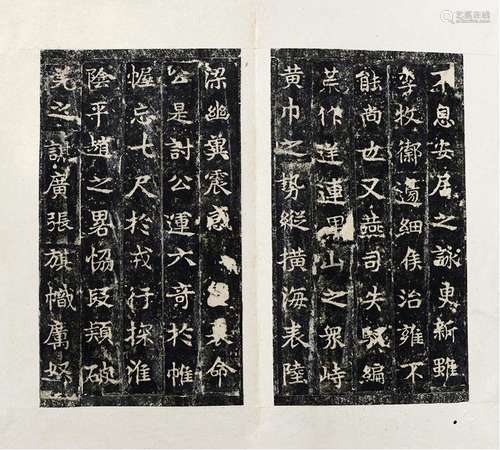 不息安居之詠更新雖
李牧禦邊細侯治雍不
能尚也又燕司失馭編
作逆連黑山之眾峙
黃巾之勢縱橫海表陸
梁幽冀震惑命
公是討公運六奇於帷
幄忘七尺於戎行採淮
陰平趙之畧協段熲破
羌之謀廣張旗幟厲奴